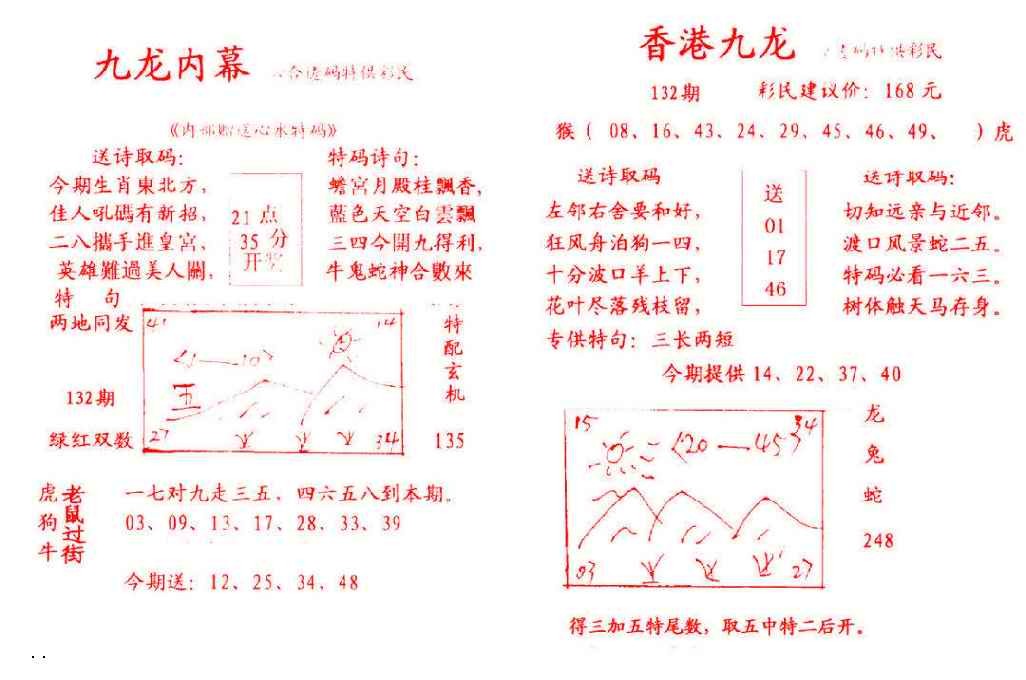 九龙内幕
合 码特供彩民
《内部赠送心水特码》
送诗取码：
今期生肖東北方，
佳人吼碼有新招，
二八攜手進皇宮，
英雄難過美人關，
21 点
35 分
开奖
特码诗句：
蟾宮月殿桂飄香，
藍色天空白雲飄
三四今開九得利，
牛鬼蛇神合數來
特 句
两地同发
132期
绿红双数
41
14
五
27
34
特
配
玄
机
135
虎
狗
牛
老鼠过街
一七对九走三五、四六五八到本期。
03、09、13、17、28、33、39
今期送：12、25、34、48
香港九龙
码特供彩民
132期
彩民建议价：168 元
猴（ 08、16、43、24、29、45、46、49、 ）虎
送诗取码
左邻右舍要和好，
狂风舟泊狗一四，
十分波口羊上下，
花叶尽落残枝留，
送
01
17
46
送诗取码：
切知远亲与近邻。
渡口风景蛇二五。
特码必看一六三。
树体触天马存身。
专供特句：三长两短
今期提供 14、22、37、40
15
34
20—45
03
27
龙
兔
蛇
248
得三加五特尾数，取五中特二后开。